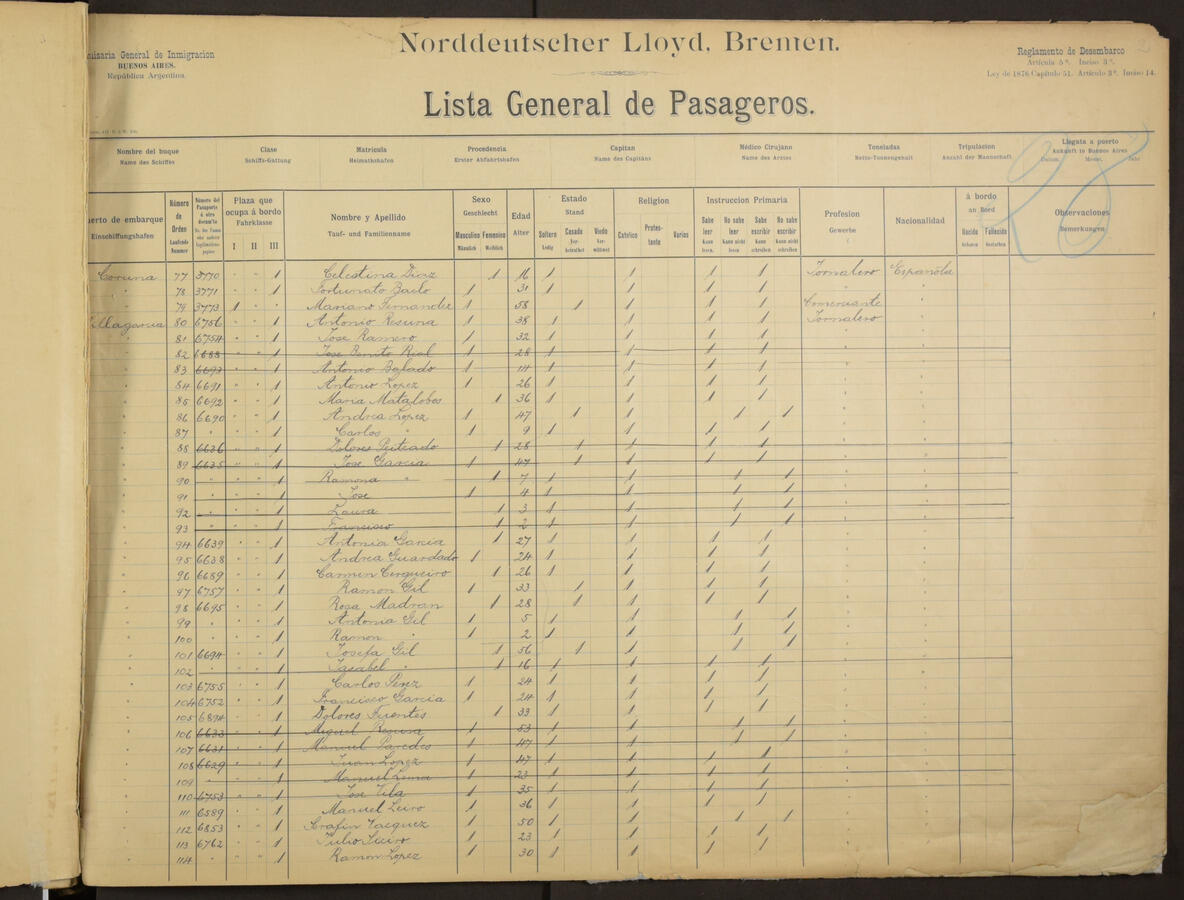 Norddeutscher Lloyd, Bremen.
Lista General de Pasageros.
General de Inmigracion
BUENOS AIRES.
República Argentina.
Reglamento de Desembarco
Articula 5º. Inciso 3º.
Ley de 1876 Capítulo 51. Artículo 3º. Inciso 14.
Nombre del buque Clase Matricula Procedencia Capitan Médico Cirujano Toneladas Tripulacion Llegata a puerto
Name des Schiffes Schiffs-Gattung Heimathshafen Erster Abfahrtshafen Name des Capitäns Name des Arztes Netto-Tonnengehalt Anzahl der Mannschaft Ankunft in Buenos Aires
Datum. Monat. Jahr
de embarque Número de Orden Plaza que ocupa á bordo Nombre y Apellido Sexo Edad Estado Religion Instruccion Primaria Profesion Nacionalidad á bordo Observaciones
Einschiffungshafen Laufende Nummer Fahrklasse Tauf- und Familienname Geschlecht Alter Stand Gewerbe an Bord Bemerkungen
I II III Masculino Femenino Soltero Casado Viudo Catolico Protestante Varios Sabe leer No sabe leer Sabe escribir No sabe escribir Nacido Fallecido
Männlich Weiblich Ledig Verheirathet Verwittwet Kann lesen Kann nicht lesen Kann schreiben Kann nicht schreiben
Coruna 77 3770 " " 1 Celestina Diaz 1 16 1 1 1 1 Jornalero Española
" 78 3771 " " 1 Fortunato Bailo 1 31 1 1 1 1
" 79 3773 1 Mariano Fernandez 1 58 1 1 1 1 Comerciante
Villagarcia 80 6756 " " 1 Antonio Resuna 1 38 1 1 1 1 Jornalero
" 81 6754 " " 1 Jose Ramero 1 32 1 1 1 1
" 82 6688 " " 1 Jose Benito Real 1 28 1 1 1 1
" 83 6693 " " 1 Antonio Balado 1 14 1 1 1 1
" 84 6691 " " 1 Antonio Lopez 1 26 1 1 1 1
" 85 6692 " " 1 Maria Matalobos 1 36 1 1 1 1
" 86 6690 " " 1 Andrea Lopez 1 47 1 1 1 1
" 87 " " " 1 Carlos " 1 9 1 1 1 1
" 88 6636 " " 1 Dolores Peiteado 1 28 1 1 1 1
" 89 6635 " " 1 Jose Garcia 1 47 1 1 1 1
" 90 " " " 1 Ramona " 1 7 1 1 1 1
" 91 " " " 1 Jose 1 4 1 1 1 1
" 92 " " " 1 Laura 1 3 1 1 1 1
" 93 " " " 1 Francisco 1 2 1 1 1 1
" 94 6639 " " 1 Antonia Garcia 1 27 1 1 1 1
" 95 6638 " " 1 Andrea Guardado 1 24 1 1 1 1
" 96 6689 " " 1 Carmen Cerqueiro 1 26 1 1 1 1
" 97 6757 " " 1 Ramon Gil 1 33 1 1 1 1
" 98 6695 " " 1 Rosa Madran 1 28 1 1 1 1
" 99 " " " 1 Antonia Gil 5 1 1 1 1
" 100 " " " 1 Ramon " 2 1 1 1 1
" 101 6694 " " 1 Josefa Gil 1 56 1 1 1 1
" 102 " " " 1 Isabel " 1 16 1 1 1 1
" 103 6755 " " 1 Carlos Perez 1 24 1 1 1 1
" 104 6752 " " 1 Francisco Garcia 1 24 1 1 1 1
" 105 6894 " " 1 Dolores Fuentes 1 33 1 1 1 1
" 106 6633 " " 1 Miguel 1 53 1 1 1 1
" 107 6631 " " 1 Manuel Paredes 1 47 1 1 1 1
" 108 6629 " " 1 Juan Lopez 1 47 1 1 1 1
" 109 " " " 1 Manuel Lema 1 23 1 1 1 1
" 110 6753 " " 1 Jose Vila 1 35 1 1 1 1
" 111 6589 " " 1 Manuel Leiro 1 36 1 1 1 1
" 112 6853 " " 1 Serafin Vazquez 1 50 1 1 1 1
" 113 6762 " " 1 Julio 1 23 1 1 1 1
" 114 " " " 1 Ramon Lopez 1 30 1 1 1 1